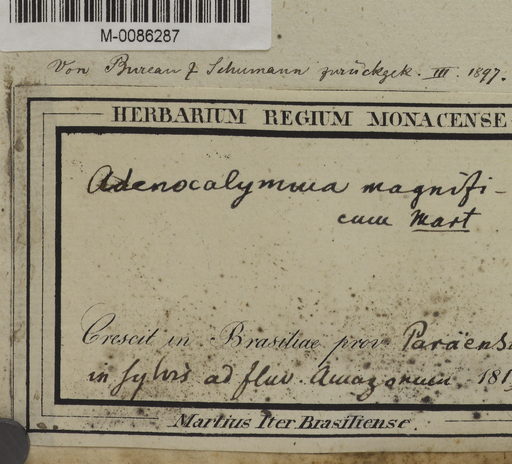 M-0086287
Von Bureau & Schumann zurückgek. III. 1897.
HERBARIUM REGIUM MONACENSE
Adenocalymma magnifi-
cum Mart
Crescit in Brasiliae prov Paraens
in sylvis ad fluv. Amazonum. 181
Martius Iter Brasiliense